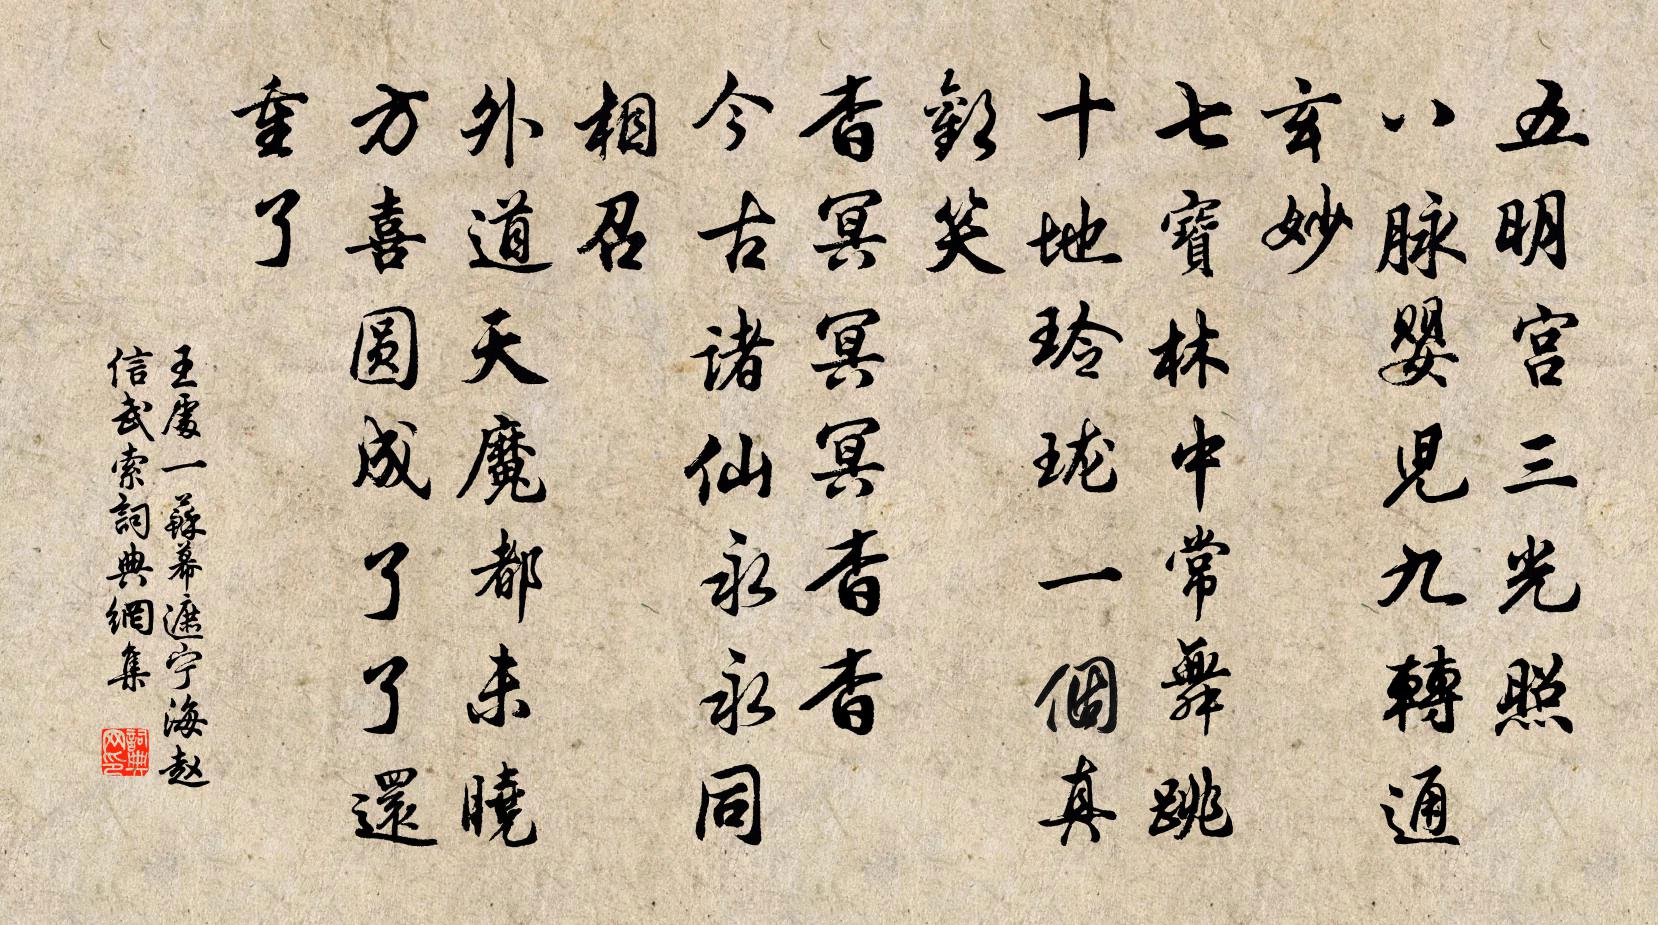 五明宫三光照
八脉婴兒九轉通
玄妙
七寶林中常舞跳
十地玲珑一個真
歡笑
杳冥冥冥杳杳
今古诸仙永永同
相召
外道天魔都未曉
方喜圆成了了還
重了
王處一蘇幕遮宁海赵
信武索詞典網集
詞典网印